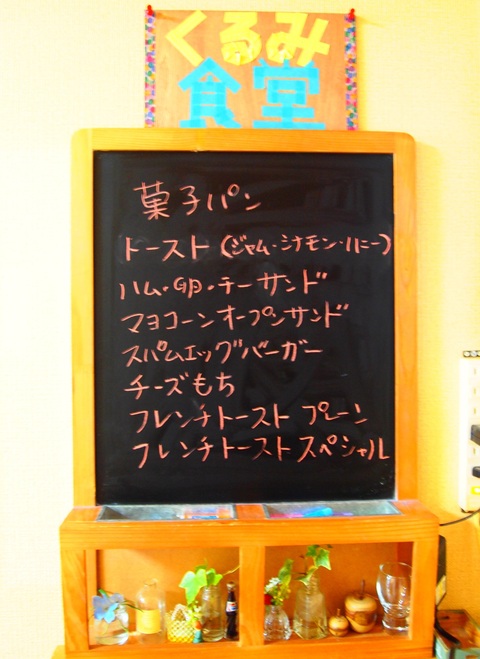 くるみ
食堂
菓子パン
トースト(ジャム・シナモン・ハニー)
ハム・卵・チーサンド
マヨコーンオープンサンド
スパムエッグバーガー
チーズもち
フレンチトースト プレーン
フレンチトーストスペシャル